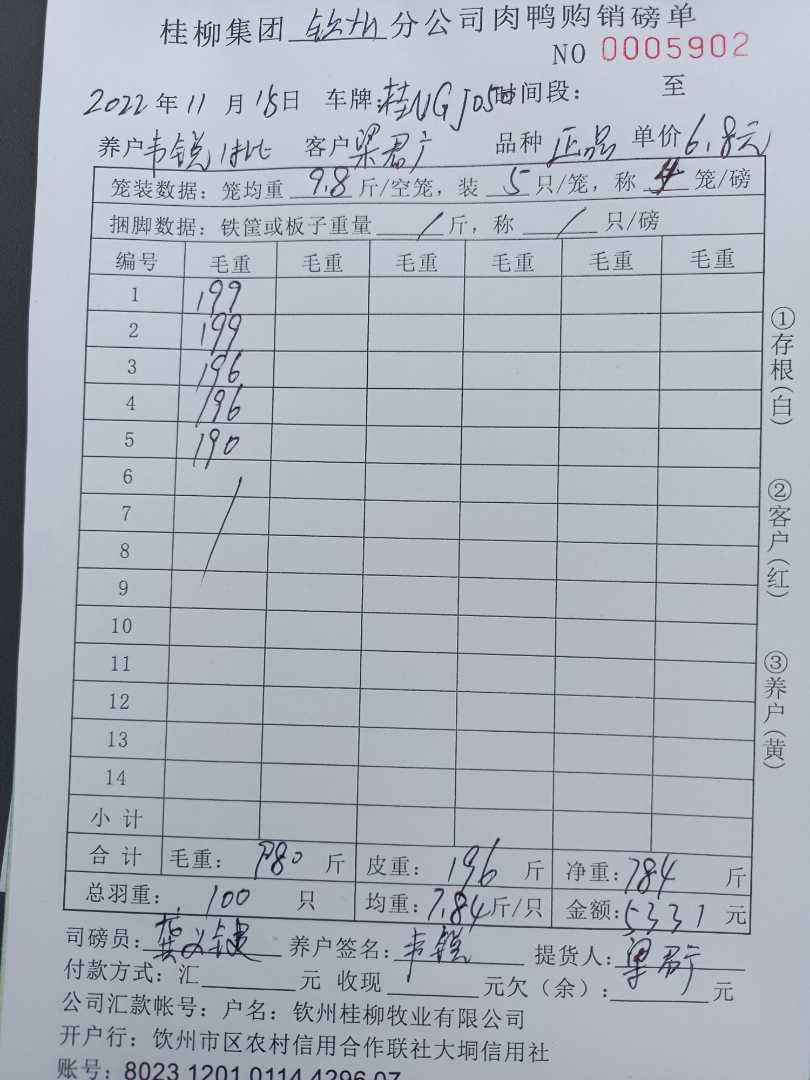 桂柳集团 钦州 分公司肉鸭购销磅单
NO 0005902
2022年11月18日 车牌:桂NGJ050 时间段: 至
养户韦锐 客户梁君广 品种 正品 单价6.8元
笼装数据:笼均重 9.8 斤/空笼,装 5 只/笼,称 4 笼/磅
捆脚数据:铁筐或板子重量 / 斤,称 / 只/磅
编号 毛重 毛重 毛重 毛重 毛重 毛重
1 199
2 199
3 196
4 196
5 190
6
7
8
9
10
11
12
13
14
小计
合计 毛重: 980 斤 皮重: 196 斤 净重:784 斤
总羽重: 100 只 均重:7.84斤/只 金额:5331 元
司磅员: 龚义健 养户签名: 韦锐 提货人: 梁君广
付款方式:汇 元 收现 元欠(余): 元
公司汇款帐号:户名:钦州桂柳牧业有限公司
开户行:钦州市区农村信用合作联社大垌信用社
账号:8023 1201 0114 4296 07
①存根(白)
②客户(红)
③养户(黄)